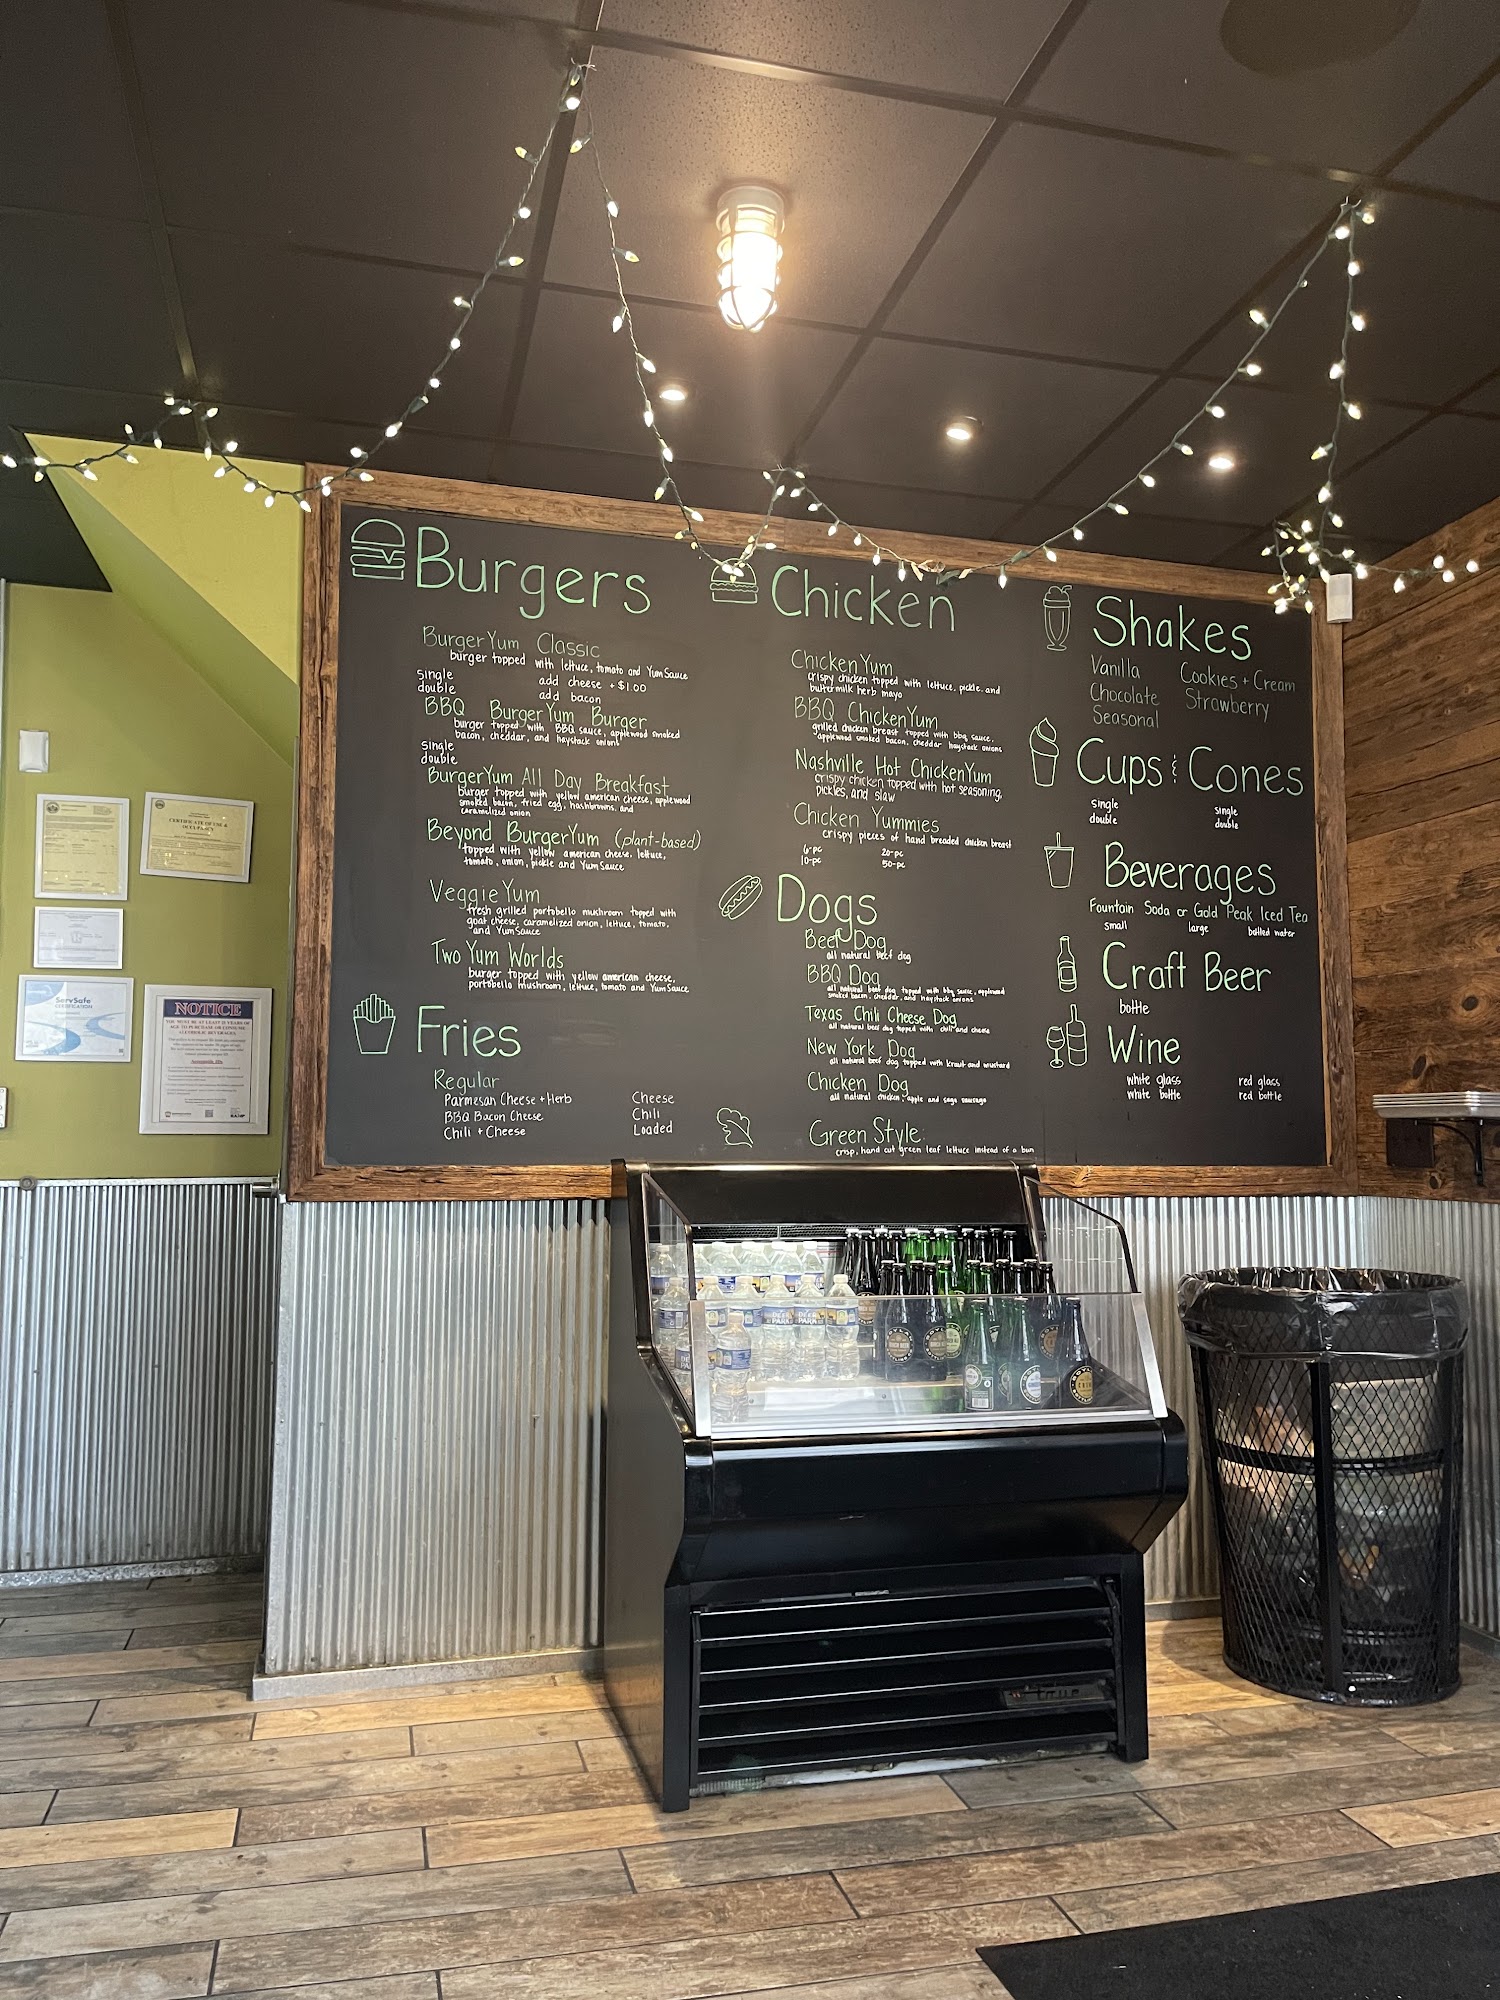 Burgers
BurgerYum Classic
burger topped with lettuce, tomato and YumSauce
single
add cheese + $1.00
double
add bacon
BBQ BurgerYum Burger
burger topped with BBQ sauce, applewood smoked
bacon, cheddar, and haystack onions
single
double
BurgerYum All Day Breakfast
burger topped with yellow american cheese, applewood
smoked bacon, fried egg, hashbrowns, and
caramelized onion
Beyond BurgerYum (plant-based)
topped with yellow american cheese, lettuce,
tomato, onion, pickle and YumSauce
VeggieYum
fresh grilled portobello mushroom topped with
goat cheese, caramelized onion, lettuce, tomato,
and YumSauce
Two Yum Worlds
burger topped with yellow american cheese,
portobello mushroom, lettuce, tomato and YumSauce
Fries
Regular
Parmesan Cheese + Herb
Cheese
BBQ Bacon Cheese
Chili
Chili + Cheese
Loaded
Chicken
ChickenYum
crispy chicken topped with lettuce, pickle, and
buttermilk herb mayo
BBQ ChickenYum
grilled chicken breast topped with bbq sauce,
applewood smoked bacon, cheddar haystack onions
Nashville Hot ChickenYum
crispy chicken topped with hot seasoning,
pickles, and slaw
Chicken Yummies
crispy pieces of hand breaded chicken breast
6-pc
20-pc
10-pc
50-pc
Dogs
Beef Dog
all natural beef dog
BBQ Dog
all natural beef dog topped with bbq sauce, applewood
smoked bacon, cheddar, and haystack onions
Texas Chili Cheese Dog
all natural beef dog topped with chili and cheese
New York Dog
all natural beef dog topped with kraut and mustard
Chicken Dog
all natural chicken, apple and sage sausage
Green Style:
crisp, hand cut green leaf lettuce instead of a bun
Shakes
Vanilla
Cookies + Cream
Chocolate
Strawberry
Seasonal
Cups & Cones
single
single
double
double
Beverages
Fountain Soda or Gold Peak Iced Tea
small
large
bottled water
Craft Beer
bottle
Wine
white glass
red glass
white bottle
red bottle
CERTIFICATE OF USE &
OCCUPANCY
ServSafe
CERTIFICATION
NOTICE
YOU MUST BE AT LEAST 21 YEARS OF
AGE TO PURCHASE OR CONSUME
ALCOHOLIC BEVERAGES.
DEER
PARK
true